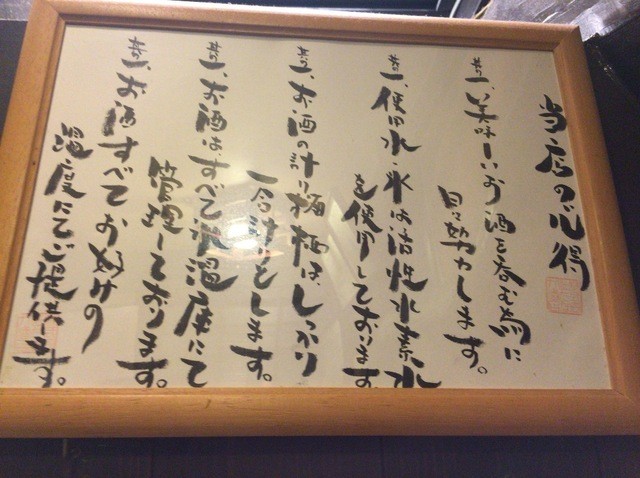 当店の心得
昔一、美味しいお酒を呑む為に
日々努力します。
昔一、使用水・氷は活性水素水
を使用しております
昔一、お酒の計り
は、しっかり
一合計りとします。
昔一、お酒は、すべて氷温庫にて
管理しております。
昔一、お酒すべてお好みの
温度にてご提供
ます。